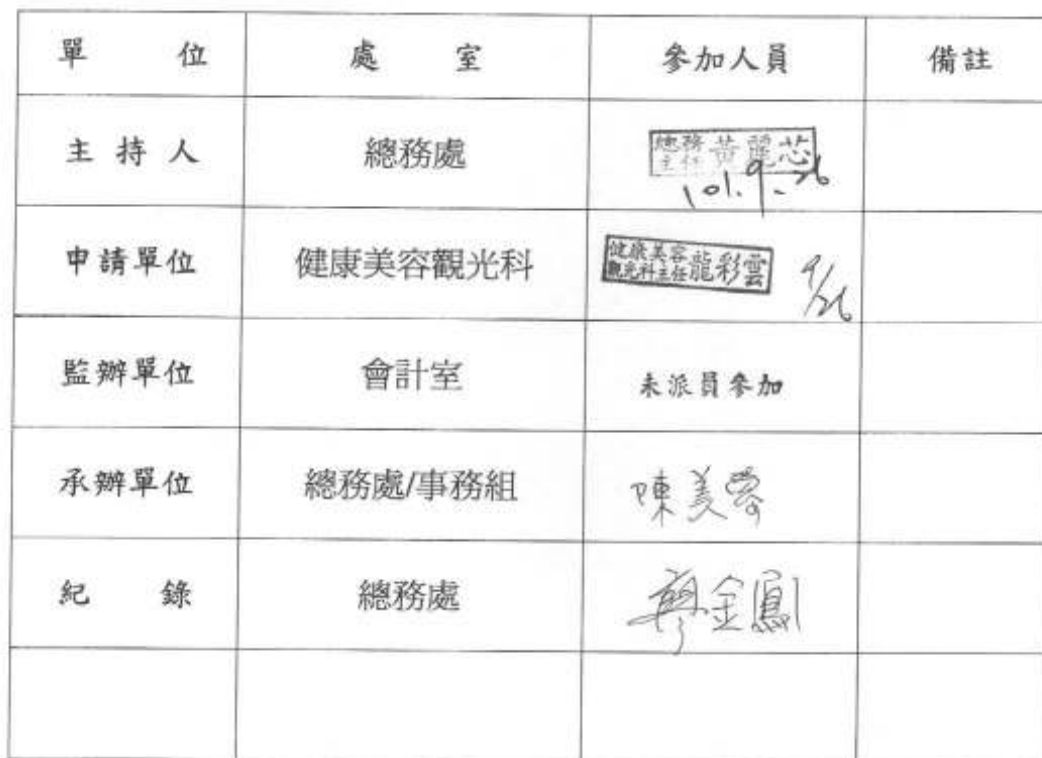 單 位 處 室 參加人員 備註
主 持 人 總務處 總務主任 黃麗芯
101.9.26
申請單位 健康美容觀光科 健康美容觀光科主任 龍彩雲 9/26
監辦單位 會計室 未派員參加
承辦單位 總務處/事務組 陳美蓉
紀 錄 總務處 廖金鳳